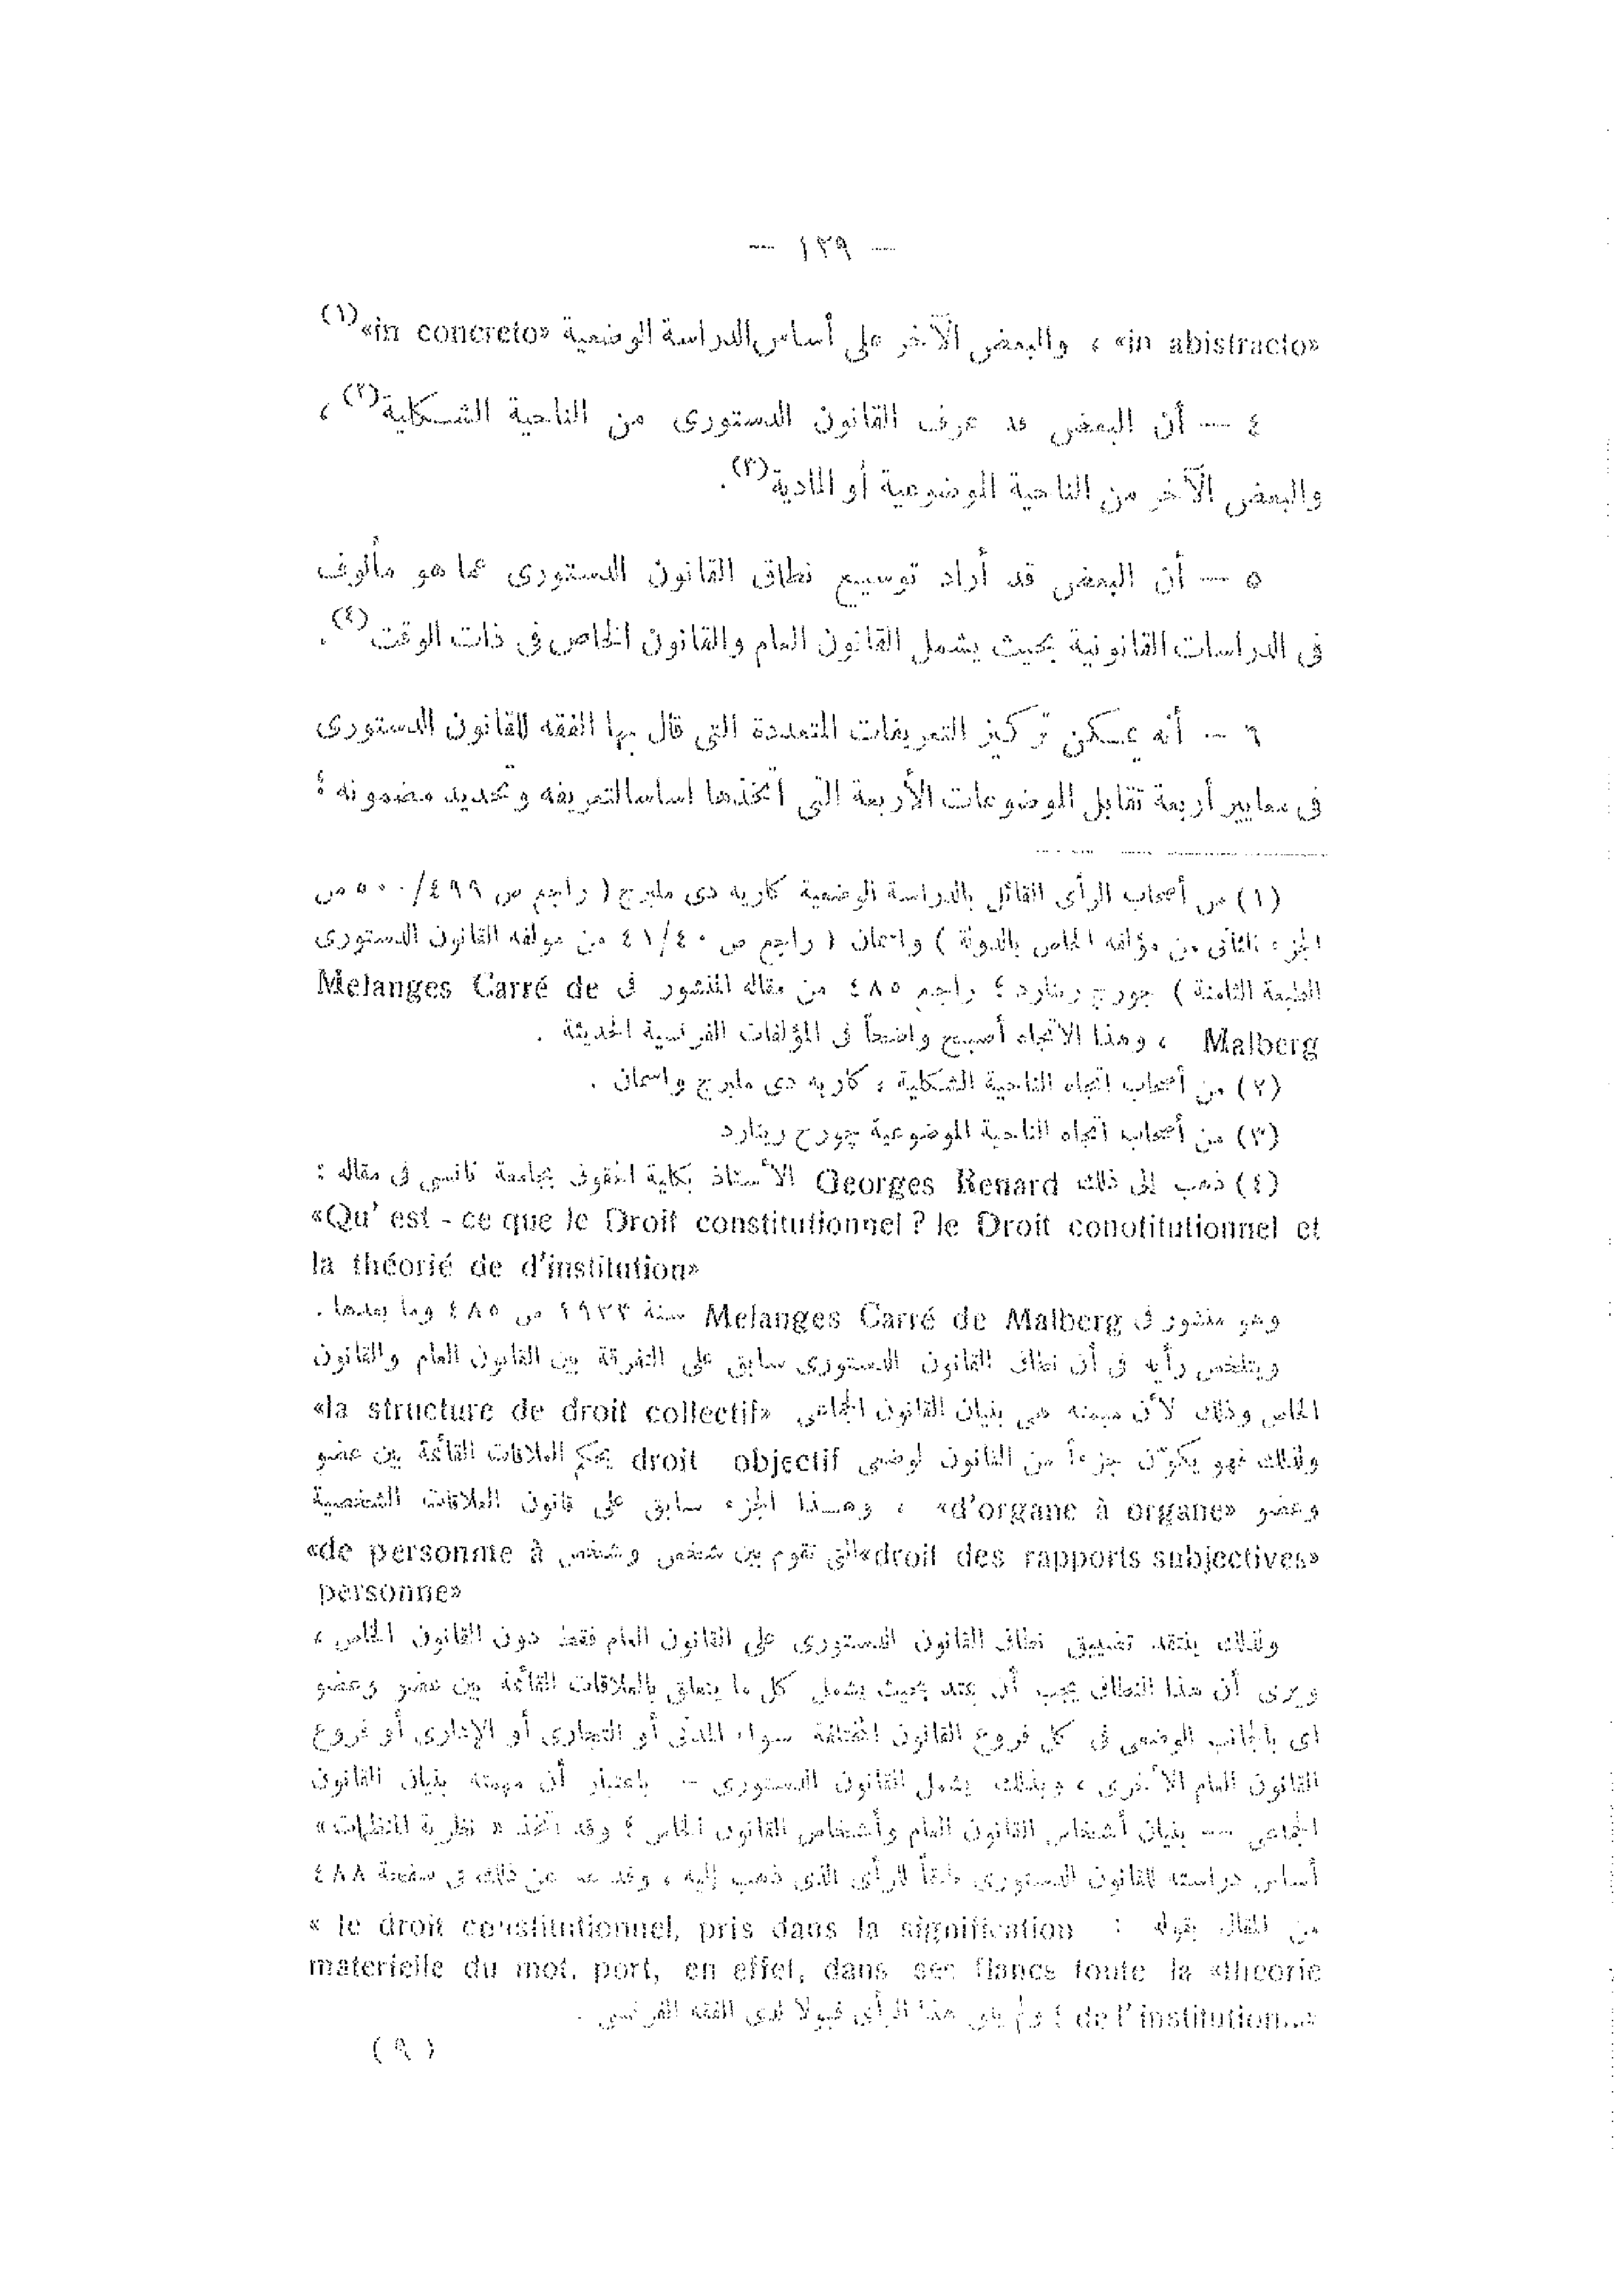 — ١٢٩ —
«in abistracto» ، والبعض الآخر على أساس الدراسة الوضعية «in concreto» (١)
٤ — أن البعض قد عرف القانون الدستورى من الناحية الشكلية (٢) ،
والبعض الآخر من الناحية الموضوعية أو المادية (٣) .
٥ — أن البعض قد أراد توسيع نطاق القانون الدستورى عما هو مألوف
فى الدراسات القانونية بحيث يشمل القانون العام والقانون الخاص فى ذات الوقت (٤) .
٦ — أنه يمكن تركيز التعريفات المتعددة التى قال بها الفقه للقانون الدستورى
فى معايير أربعة تقابل الموضوعات الأربعة التى اتخذها اساسا لتعريفه وتحديد مضمونه :
(١) من أصحاب الرأى القائل بالدراسة الوضعية كاريه دى ملبرج ( راجع ص ٤٩٩/٥٠٠ من
الجزء الثانى من مؤلفه الخاص بالدولة ) واسمان ( راجع ص ٤١/٤٠ من مولفه القانون الدستورى
الطبعة الثامنة ) جورج رينارد ؛ راجع ٤٨٥ من مقاله المنشور فى Melanges Carré de
Malberg ، وهذا الاتجاه أصبح واضحاً فى المؤلفات الفرنسية الحديثة .
(٢) من أصحاب اتجاه الناحية الشكلية : كاريه دى ملبرج واسمان .
(٣) من أصحاب اتجاه الناحية الموضوعية جورج رينارد
(٤) ذهب إلى ذلك Georges Renard الأستاذ بكلية الحقوق بجامعة نانسى فى مقاله :
«Qu' est - ce que le Droit constitutionnel ? le Droit conotitutionnel et
la théorié de d'institution»
وهو منشور فى Melanges Carré de Malberg سنة ١٩٣٣ ص ٤٨٥ وما بعدها .
ويتلخص رأيه فى أن نطاق القانون الدستورى سابق على التفرقة بين القانون العام والقانون
الخاص وذلك لأن مهمته هى بنيان القانون الجماعى «la structure de droit collectif»
ولذلك فهو يكوّن جزءاً من القانون لوضعى droit objectif يحكم العلاقات القائمة بين عضو
وعضو «d'organe à organe» ، وهذا الجزء سابق على قانون العلاقات الشخصية
«droit des rapports subjectives» التى تقوم بين شخص وشخص «de personme à
personne»
ولذلك ينتقد تضييق نطاق القانون الدستورى على القانون العام فقط دون القانون الخاص ،
ويرى أن هذا النطاق يجب أن يمتد بحيث يشمل كل ما يتعلق بالعلاقات القائمة بين عضو وعضو
اى بالجانب الوضعى فى كل فروع القانون المختلفة سواء المدنى أو التجارى أو الإدارى أو فروع
القانون العام الأخرى ، وبذلك يشمل القانون الدستورى — باعتبار أن مهمته بنيان القانون
الجماعى — بنيان أشخاص القانون العام وأشخاص القانون الخاص ؛ وقد اتخذ « نظرية المنظمات »
أساس دراسته للقانون الدستورى طبقاً للرأى الذى ذهب إليه ، وقد عبر عن ذلك فى صفحة ٤٨٨
من المقال بقوله : « le droit constitutionnel, pris dans la signification
materielle du mot, port, en effet, dans ses flancs toute la «theorie
de l'institution...» ؛ ولم يلق هذا الرأى قبولا لدى الفقه الفرنسى .
( ٩ )